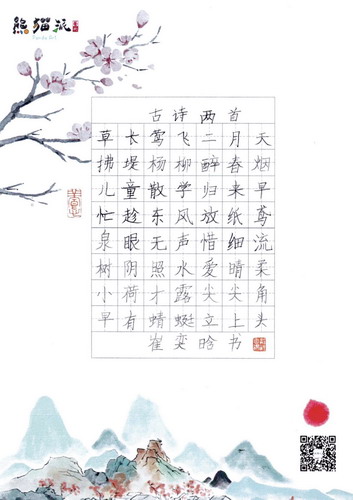 熊猫派
古诗两首
草长莺飞二月天
拂堤杨柳醉春烟
儿童散学归来早
忙趁东风放纸鸢
泉眼无声惜细流
树阴照水爱晴柔
小荷才露尖尖角
早有蜻蜓立上头
崔奕晗书